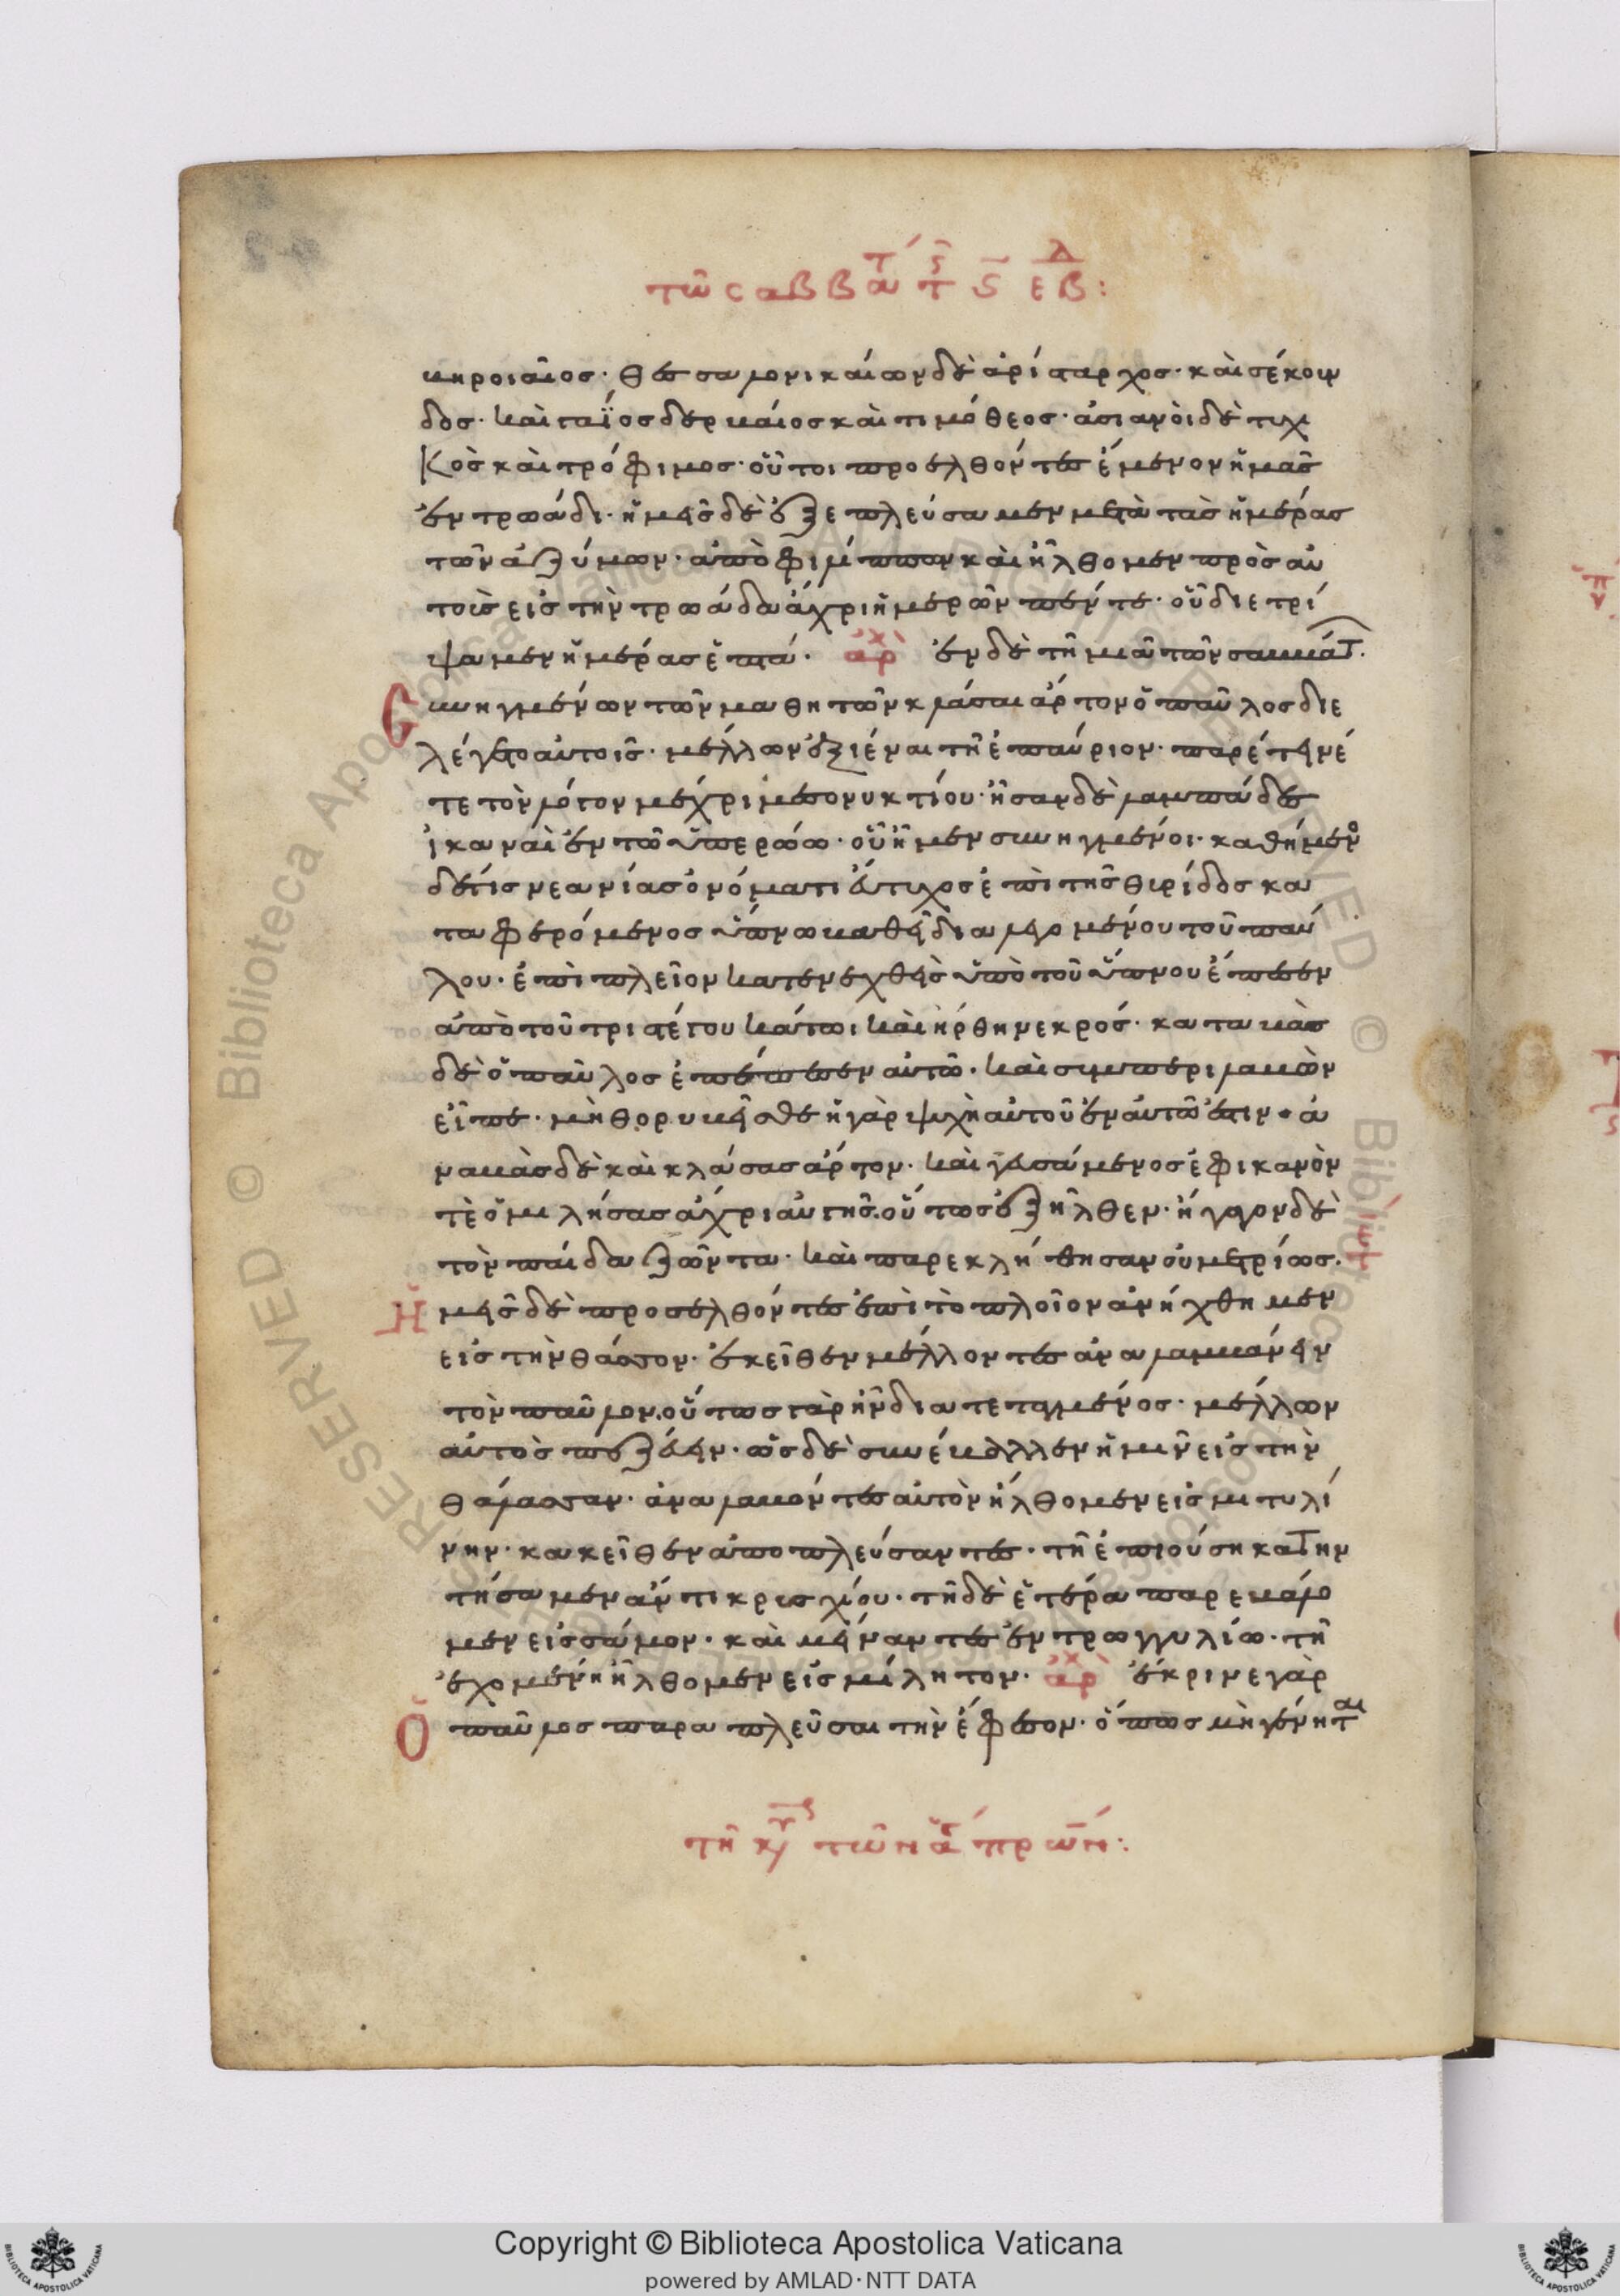 τῶ σαββάτ τῆς ϛ ἑβδ:
βηροιαῖος· θεσσαλονικαίων δὲ ἀρίσταρχος· καὶ σέκουν
δος· καὶ γάϊος δερβαῖος καὶ τιμόθεος· ἀσιανοὶ δὲ τυχι
κὸς καὶ τρόφιμος· οὗτοι προελθόντες ἔμενον ἡμᾶς
ἐν τρωάδι· ἡμεῖς δὲ ἐξεπλεύσαμεν μετὰ τὰς ἡμέρας
τῶν ἀζύμων· ἀπὸ φιλίππων καὶ ἤλθομεν πρὸς αὐ
τοὺς εἰς τὴν τρωάδα ἄχρι ἡμερῶν πέντε· οὗ διετρί
ψαμεν ἡμέρας ἑπτά· ἀρχ ἐν δὲ τῆ μιᾶ τῶν σαββάτ.
Συνηγμένων τῶν μαθητῶν κλάσαι ἄρτον ὁ παῦλος διε
λέγετο αὐτοῖς· μέλλων ἐξιέναι τῆ ἐπαύριον· παρέτεινέ
τε τὸν λόγον μέχρι μεσονυκτίου· ἦσαν δὲ λαμπάδες
ἱκαναὶ ἐν τῶ ὑπερώω· οὗ ἦμεν συνηγμένοι· καθήμεν
δέ τις νεανίας ὀνόματι εὔτυχος ἐπὶ τῆς θυρίδος κα
ταφερόμενος ὕπνω βαθεῖ διαλεγομένου τοῦ παύ
λου· ἐπὶ πλεῖον κατενεχθεὶς ὑπὸ τοῦ ὕπνου ἔπεσεν
ἀπὸ τοῦ τριστέγου κάτω καὶ ἤρθη νεκρός· καταβὰς
δὲ ὁ παῦλος ἐπέπεσεν αὐτῶ· καὶ συμπεριλαβὼν
εἶπε· μὴ θορυβεῖσθε ἡ γὰρ ψυχὴ αὐτοῦ ἐν αὐτῶ ἐστιν· ἀ
ναβὰς δὲ καὶ κλάσας ἄρτον· καὶ γευσάμενος ἐφικανὸν
τὲ ὁμιλήσας ἄχρι αὐγῆς· οὕτως ἐξῆλθεν· ἤγαγον δὲ
τὸν παῖδα ζῶντα· καὶ παρεκλήθησαν οὐ μετρίως.
Ἡμεῖς δὲ προσελθόντες ἐπὶ τὸ πλοῖον ἀνήχθημεν
εἰς τὴν θάσσον· ἐκεῖθεν μέλλοντες ἀναλαμβάνειν
τὸν παῦλον· οὕτως γὰρ ἦν διατεταγμένος· μέλλων
αὐτὸς πεζεύειν· ὡς δὲ συνέβαλλεν ἡμῖν εἰς τὴν
θάλασσαν· ἀναλαβόντες αὐτὸν ἤλθομεν εἰς μιτυλί
νην· κακεῖθεν ἀποπλεύσαντες· τῆ ἐπιούση κατην
τήσαμεν ἄντικρυς χίου· τῆ δὲ ἑτέρα παρεβάλο
μεν εἰς σάμον· καὶ μείναντες ἐν τρωγγυλίω· τῆ
ἐχομένη ἤλθομεν εἰς μίλητον· ἀρχ ἔκρινε γὰρ
Ὁ παῦλος παραπλεῦσαι τὴν ἔφεσον· ὅπως μὴ γένηται